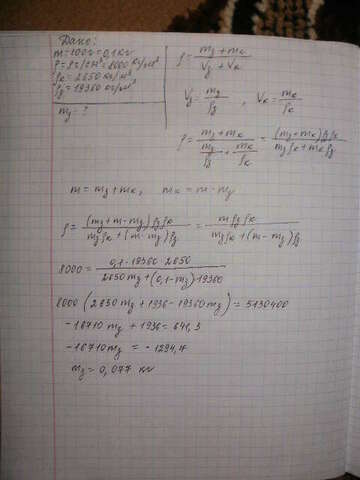 Дано:
m = 100г = 0,1 кг
ρ = 8г/см³ = 8000 кг/м³
ρк = 2650 кг/м³
ρз = 19360 кг/м³
mз - ?
ρ = (mз + mк) / (Vз + Vк)
Vз = mз / ρз , Vк = mк / ρк
ρ = (mз + mк) / (mз/ρз + mк/ρк) = (mз + mк) ρзρк / (mзρк + mкρз)
m = mз + mк , mк = m - mз
ρ = (mз + m - mз) ρзρк / (mзρк + (m - mз)ρз) = mρзρк / (mзρк + (m - mз)ρз)
8000 = 0,1 · 19360 · 2650 / (2650mз + (0,1 - mз) · 19360)
8000 (2650mз + 1936 - 19360mз) = 5130400
-16710mз + 1936 = 641,3
-16710mз = -1294,7
mз = 0,077 кг